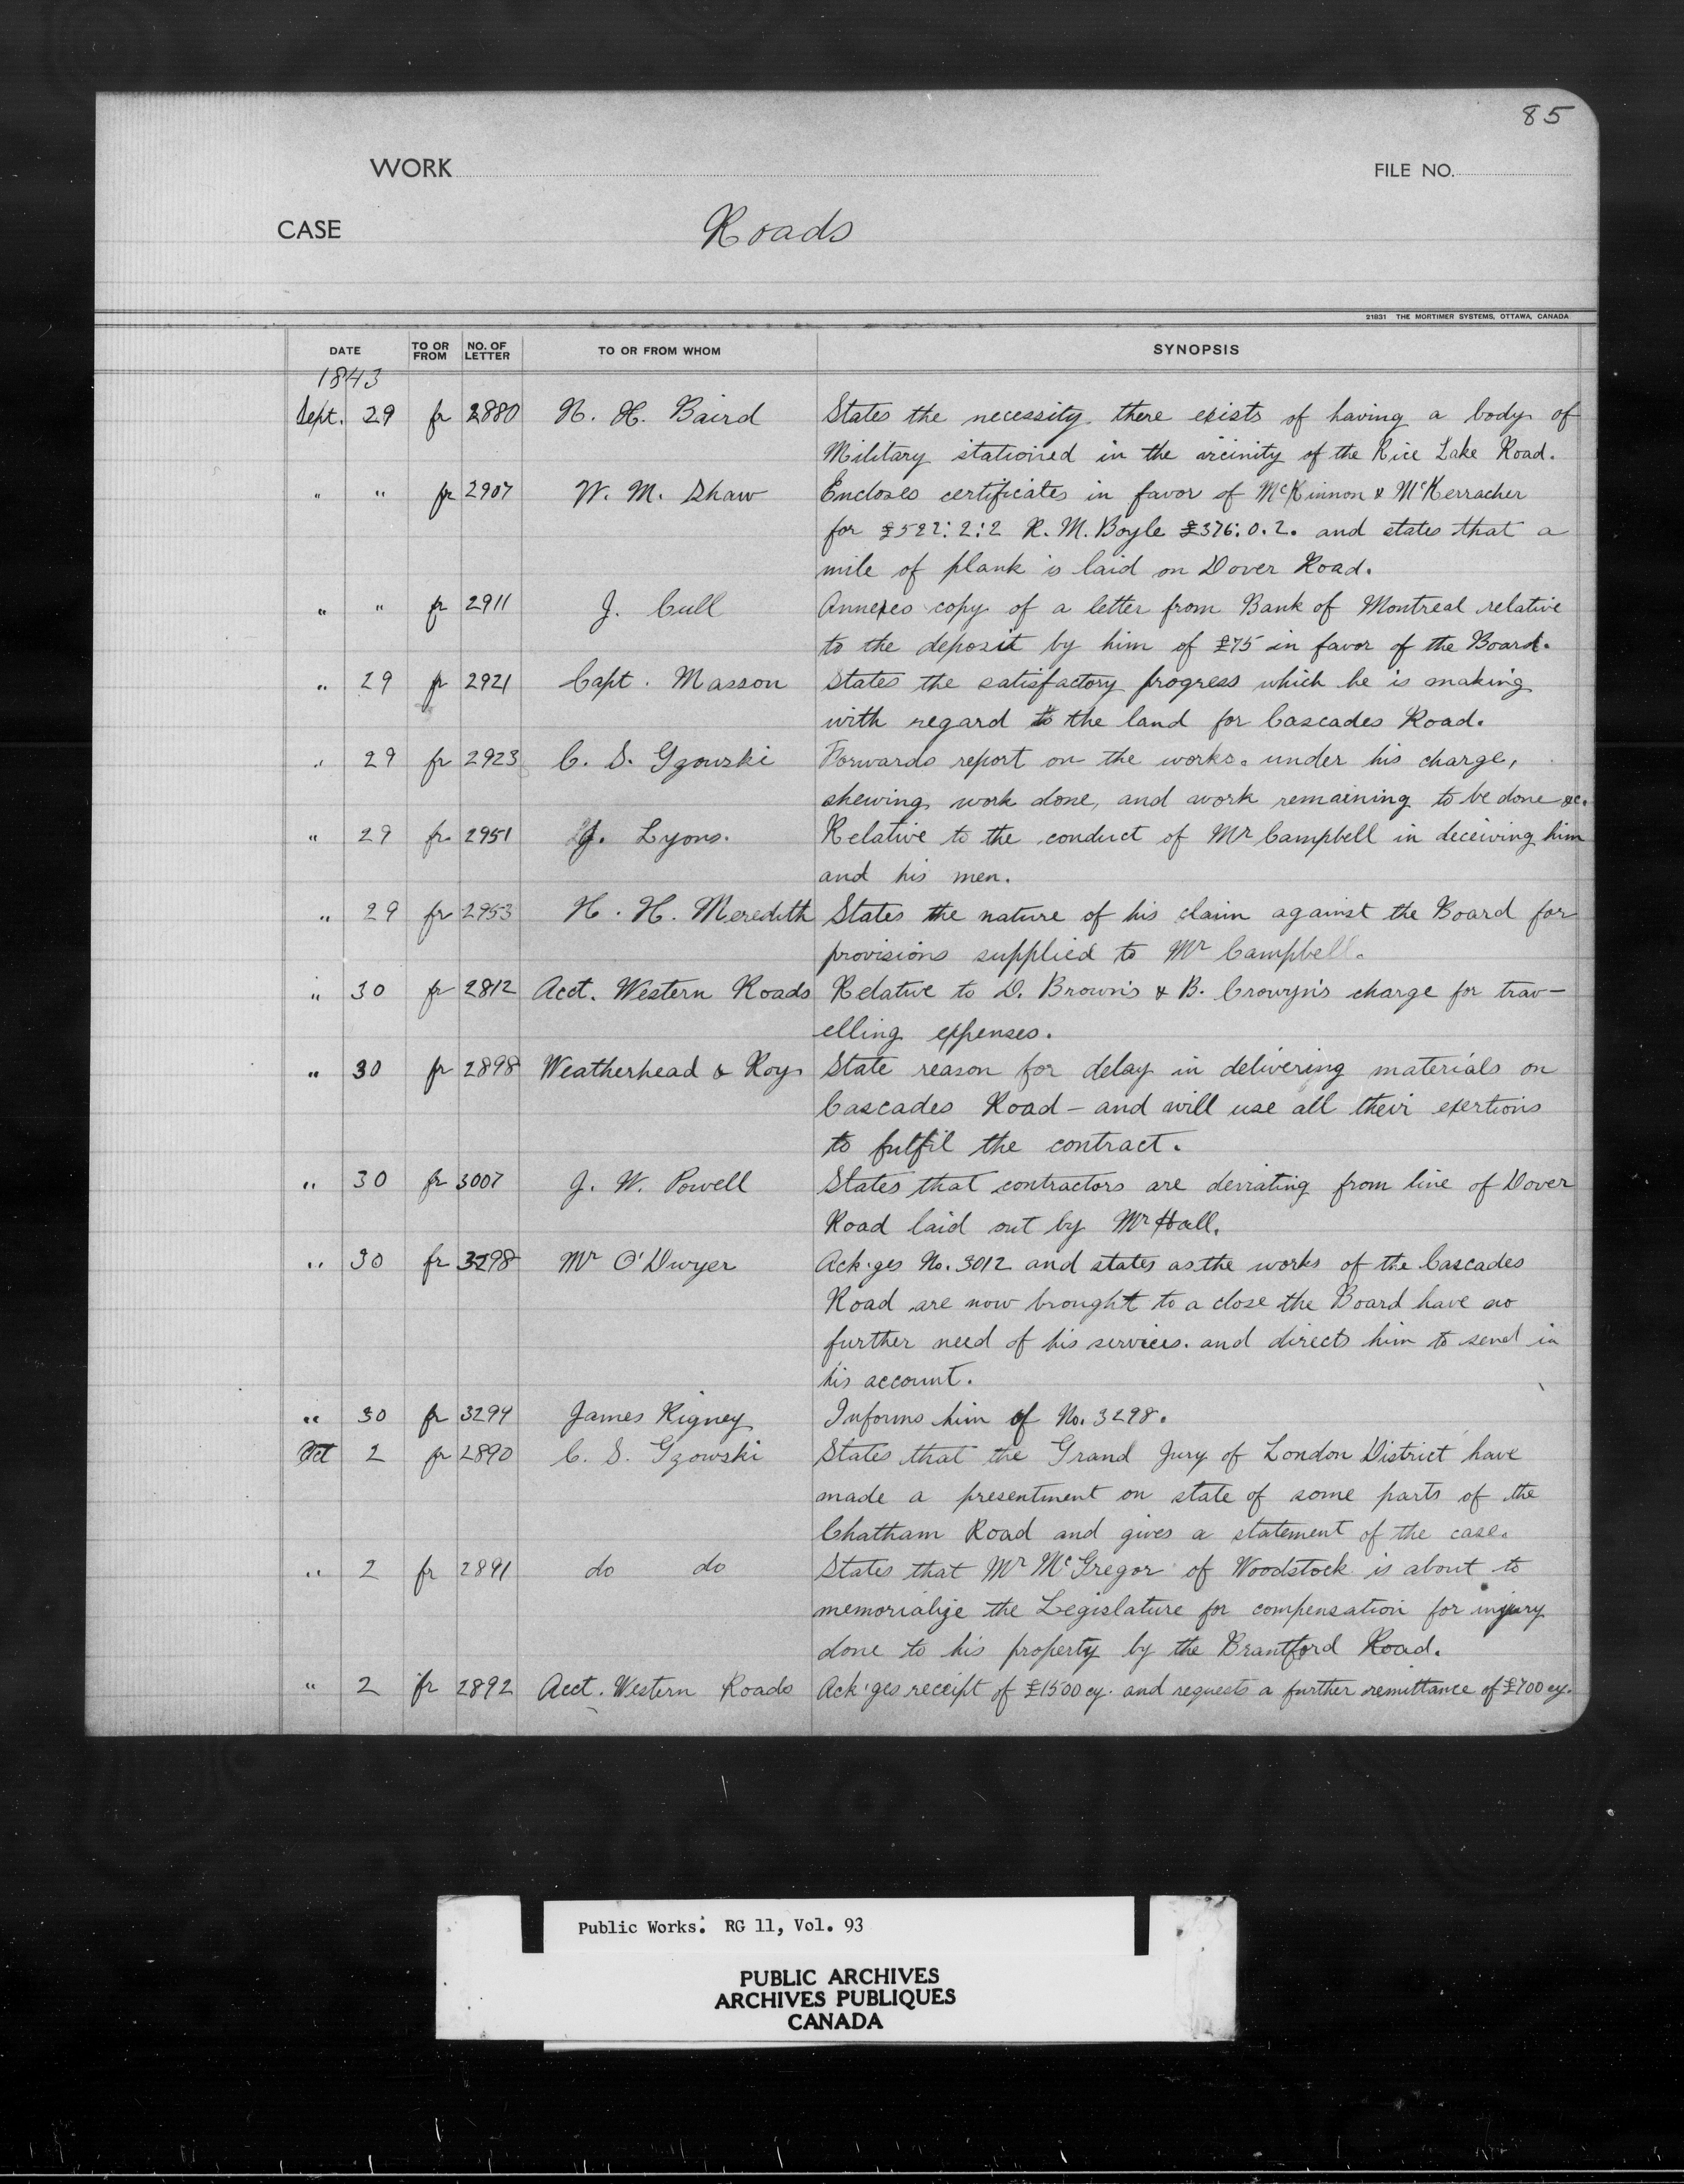 85
WORK
FILE NO.
CASE
Roads
21831 THE MORTIMER SYSTEMS, OTTAWA, CANADA
DATE TO OR FROM NO. OF LETTER TO OR FROM WHOM SYNOPSIS
1843
Sept. 29 fr 2880 N. H. Baird States the necessity there exists of having a body of
Military stationed in the vicinity of the Rice Lake Road.
" " fr 2907 W. M. Shaw Encloses certificates in favor of McKinnon & McKerracher
for £522:2:2 R. M. Boyle £376:0.2. and states that a
mile of plank is laid on Dover Road.
" " fr 2911 J. Cull Annexes copy of a letter from Bank of Montreal relative
to the deposit by him of £75 in favor of the Board.
" 29 fr 2921 Capt. Masson States the satisfactory progress which he is making
with regard to the land for Cascades Road.
" 29 fr 2923 C. S. Gzowski Forwards report on the works. under his charge,
shewing work done, and work remaining to be done &c.
" 29 fr 2951 J. Lyons. Relative to the conduct of Mr Campbell in deceiving him
and his men.
" 29 fr 2953 H. H. Meredith States the nature of his claim against the Board for
provisions supplied to Mr Campbell.
" 30 fr 2812 Acct. Western Roads Relative to D. Brown's & B. Crowyn's charge for trav-
elling expenses.
" 30 fr 2898 Weatherhead & Roy State reason for delay in delivering materials on
Cascades Road - and will use all their exertions
to fulfil the contract.
" 30 fr 3007 J. W. Powell States that contractors are deviating from line of Dover
Road laid out by Mr Hall.
" 30 fr 3298 Mr O'Dwyer Ack'ges No. 3012 and states as the works of the Cascades
Road are now brought to a close the Board have no
further need of his services. and directs him to send in
his account.
" 30 fr 3299 James Rigney Informs him of No. 3298.
Oct 2 fr 2890 C. S. Gzowski States that the Grand Jury of London District have
made a presentment on state of some parts of the
Chatham Road and gives a statement of the case.
" 2 fr 2891 do do States that Mr McGregor of Woodstock is about to
memorialize the Legislature for compensation for injury
done to his property by the Brantford Road.
" 2 fr 2892 Acct. Western Roads Ack'ges receipt of £1500 cy. and requests a further remittance of £700 cy.
Public Works. RG 11, Vol. 93
PUBLIC ARCHIVES
ARCHIVES PUBLIQUES
CANADA